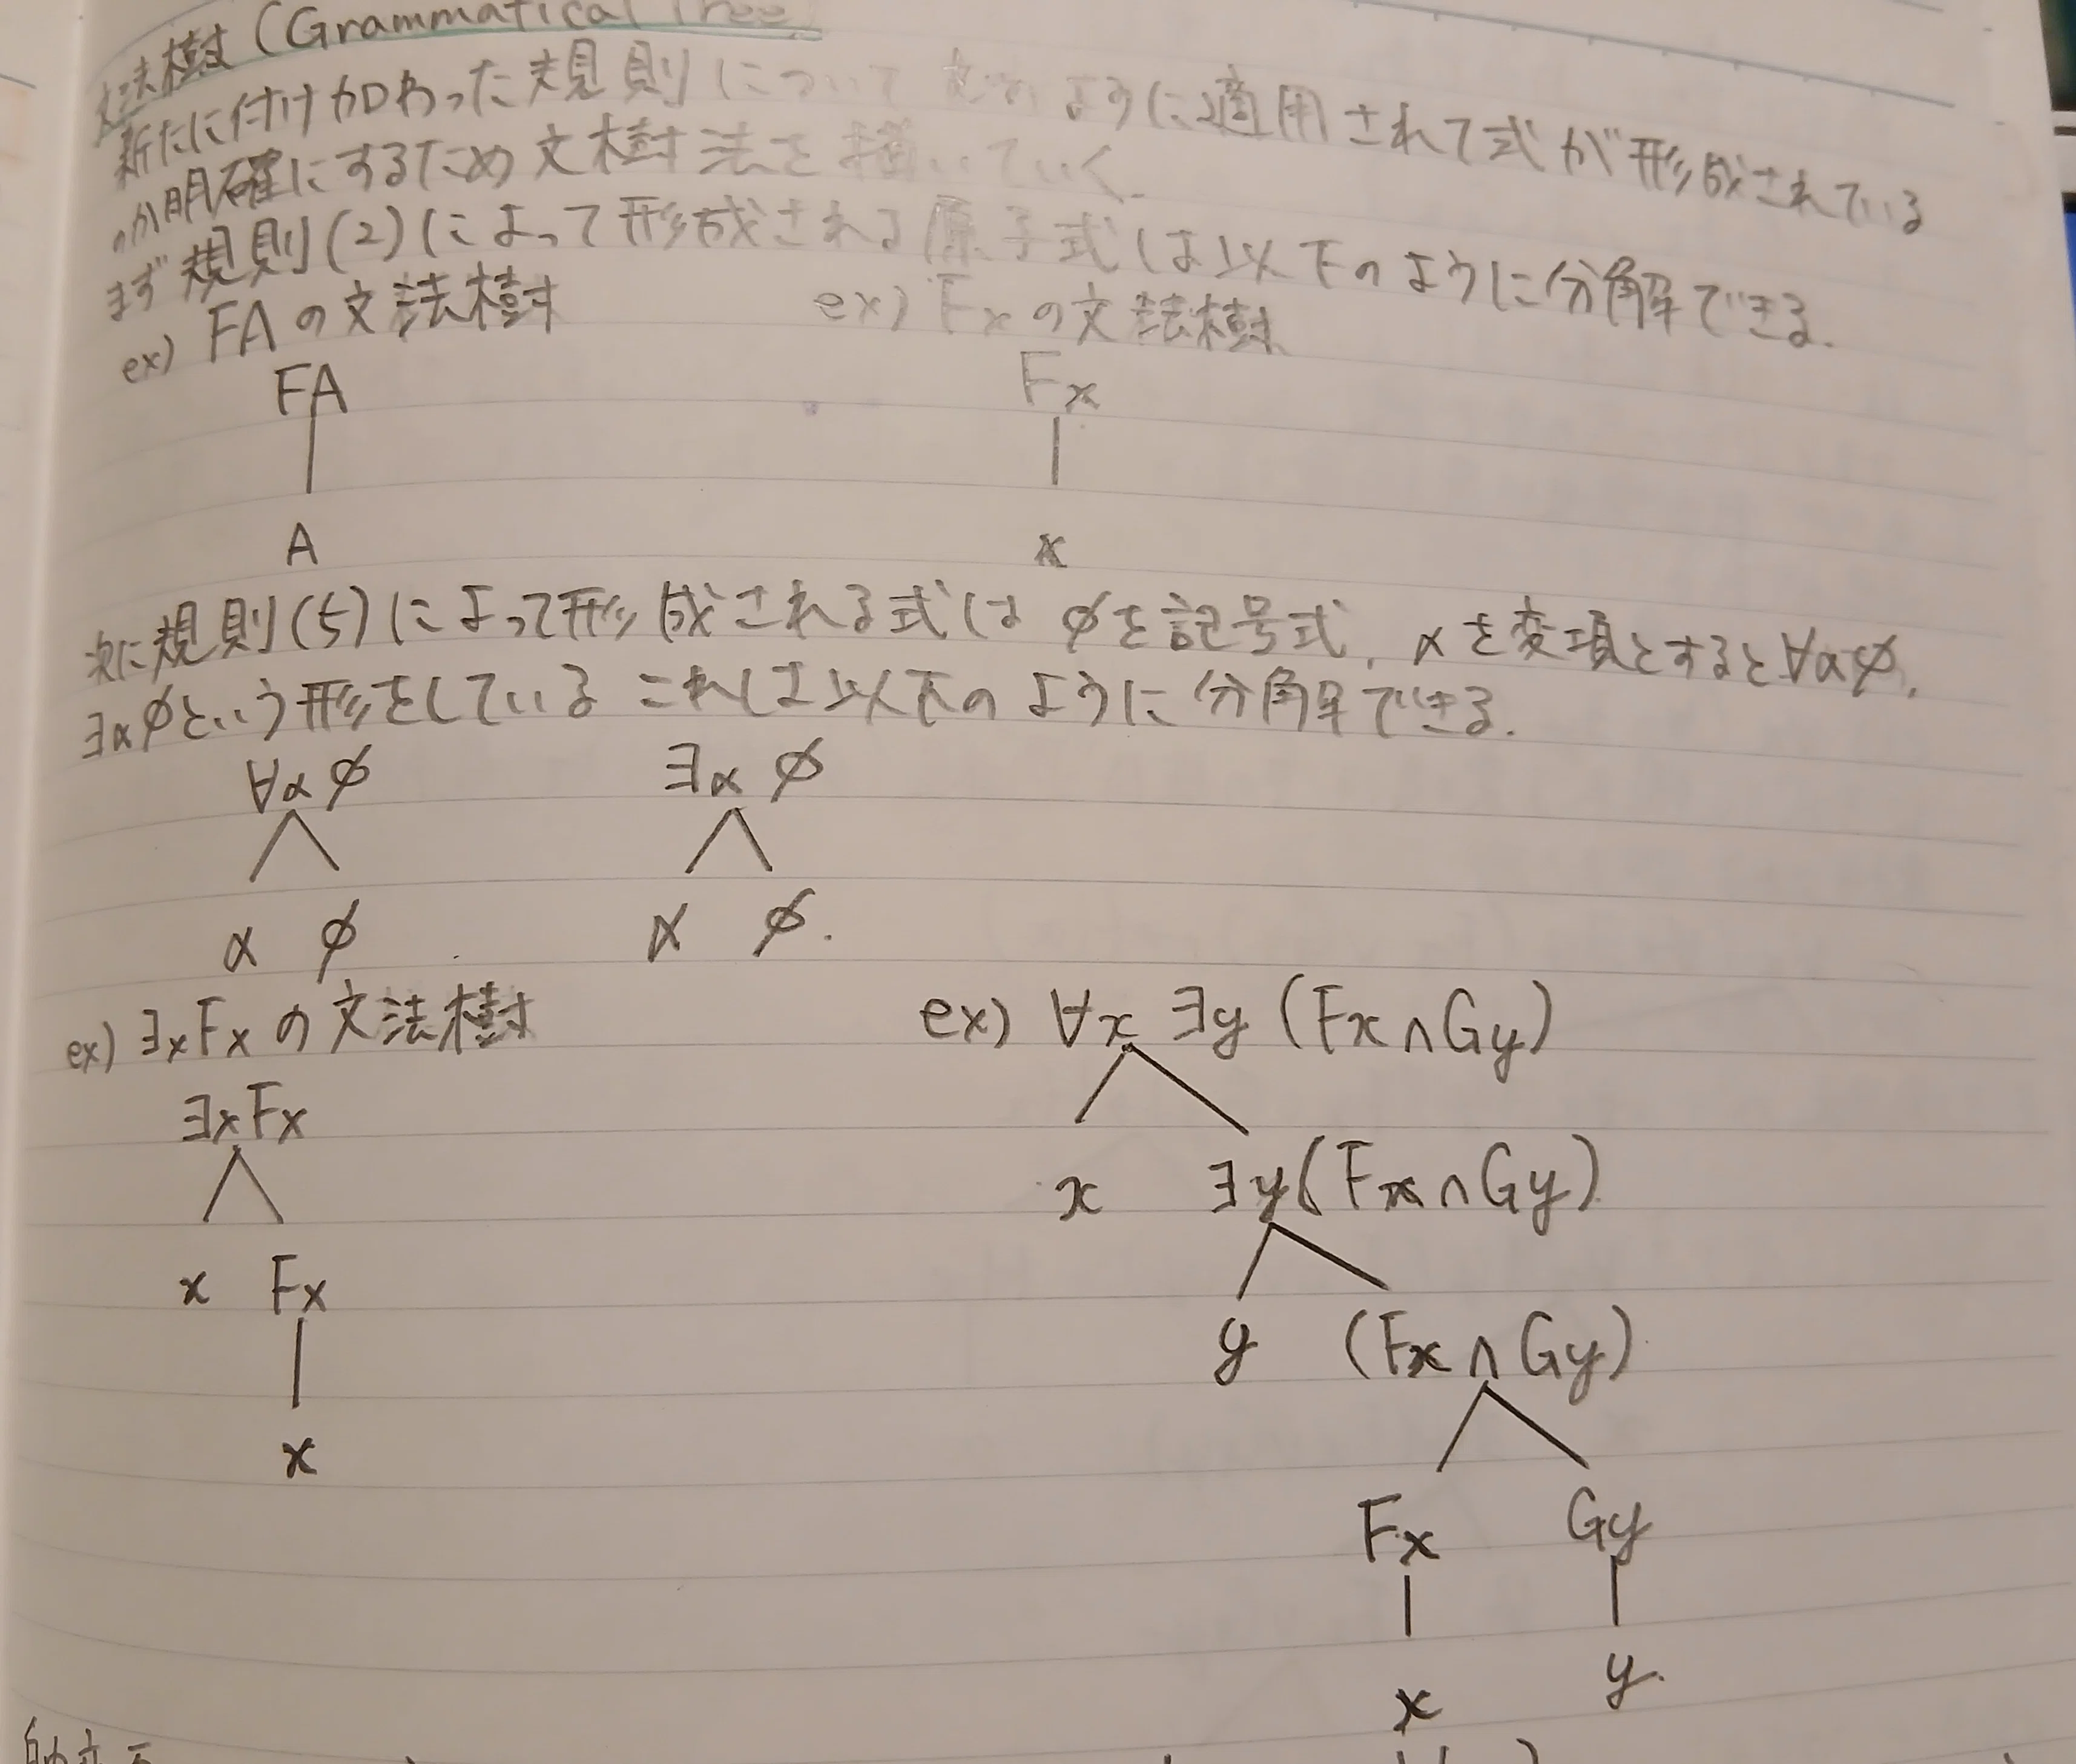 文法樹 (Grammatical Tree)
新たに付け加わった規則について ように適用されて式が形成されている
か明確にするため文樹法を描いていく.
まず規則(2)によって形成される原子式は以下のように分解できる.
ex) FAの文法樹 ex) Fxの文法樹
FA Fx
A x
次に規則(5)によって形成される式は φを記号式, αを変項とすると∀αφ,
∃αφという形をしている これは以下のように分解できる.
∀αφ ∃αφ
α φ α φ.
ex) ∃xFxの文法樹 ex) ∀x ∃y (Fx∧Gy)
∃xFx
x ∃y(Fx∧Gy)
x Fx
y (Fx∧Gy)
x
Fx Gy
x y.